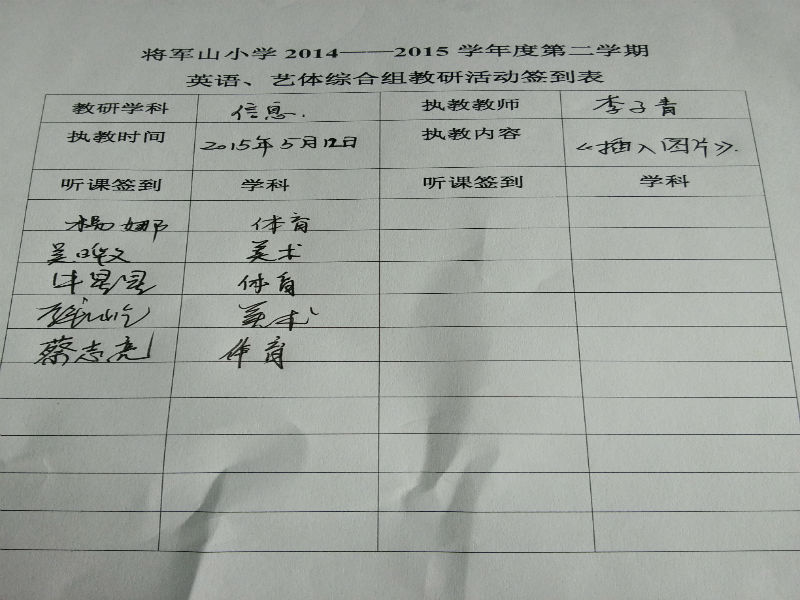 将军山小学 2014——2015 学年度第二学期
英语、艺体综合组教研活动签到表
教研学科 信息. 执教教师 李子青
执教时间 2015年5月12日 执教内容 《插入图片》.
听课签到 学科 听课签到 学科
杨娜 体育
吴晔文 美术
牛星星 体育
美术
蔡志亮 体育